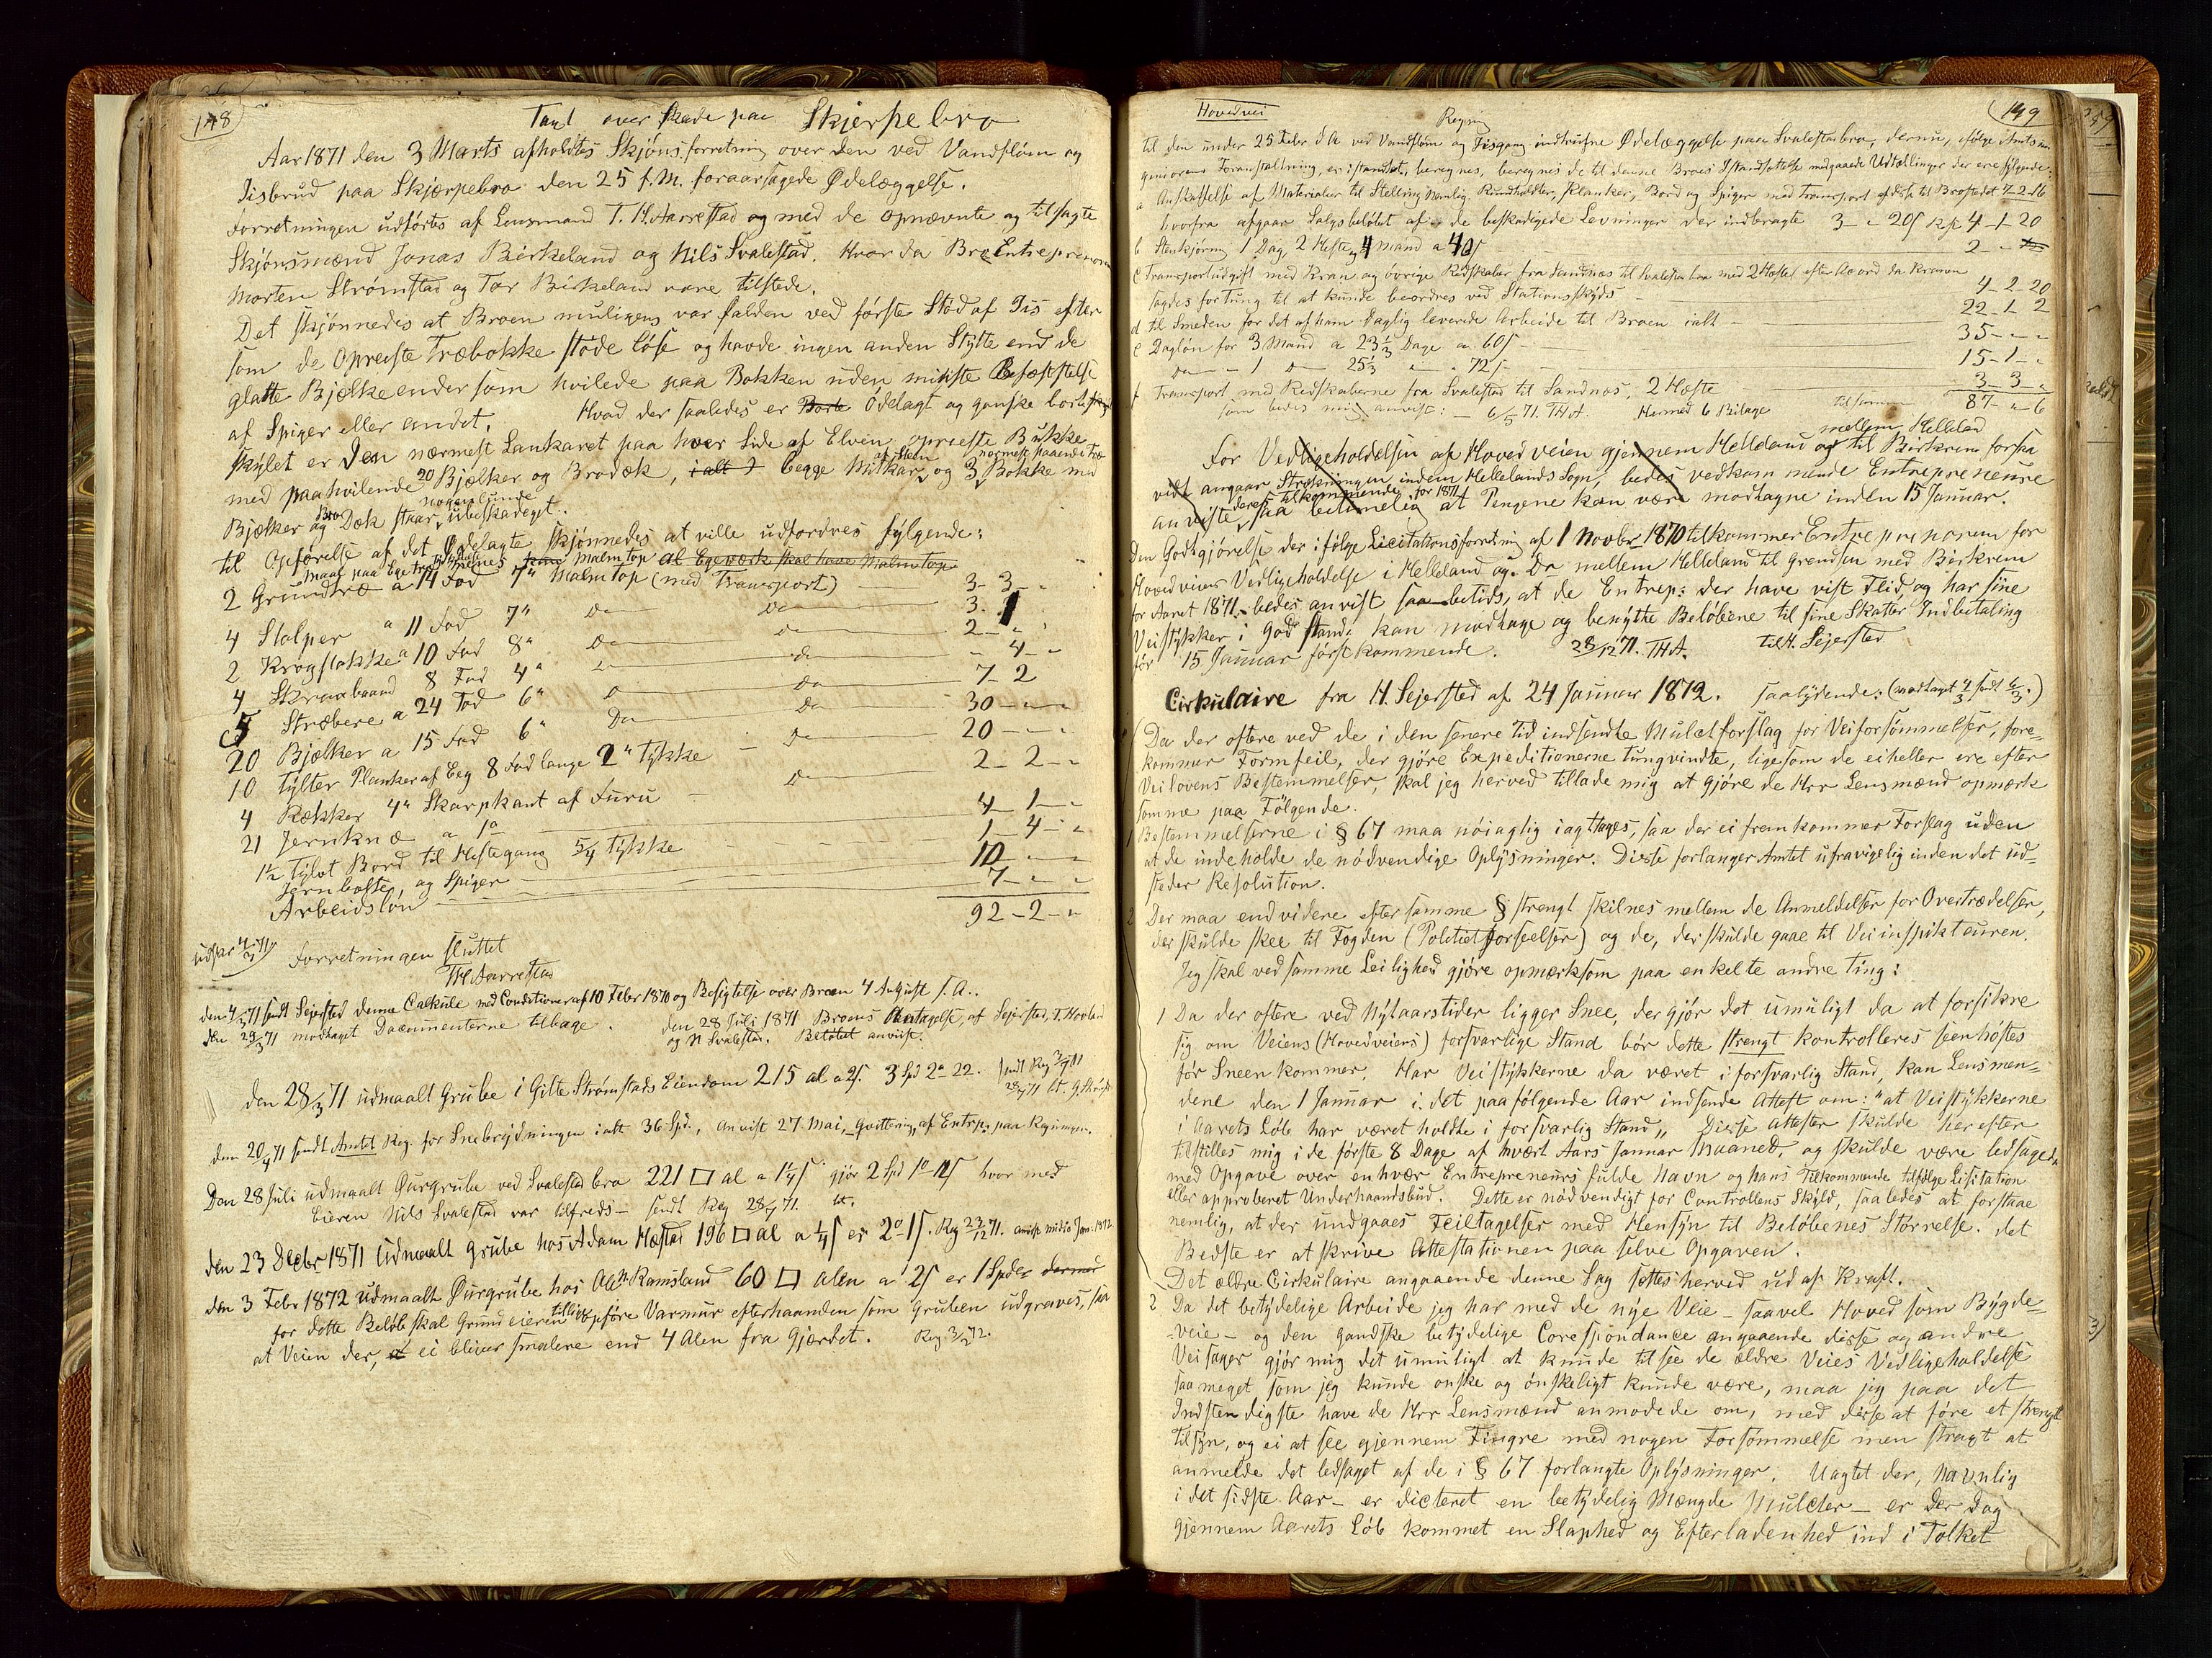 148
Taxt over Skade paa Skjerpebro
Aar 1871 den 3 Marts afholdtes Skjønsforretning over den ved Vandfløm og
Iisbrud paa Skjærpebro den 25 f.M. foraarsagede Ødelæggelse.
Forretningen udførtes af Lensmand T. H. Aarrestad og med de opnævnte og tilsagte
Skjønsmænd Jonas Birkeland og Nils Svalestad. Hvor da Bro Entreprenørn
Morten Strømstad og Tor Birkeland vare tilstede.
Det skjønnedes at Broen muligens var falden ved første Stød af Iis efter
som de opreiste Træbokke stode løse og havde ingen anden Støtte end de
glatte Bjelkeender som hvilede paa Bokken uden mindste Befæstelse
af Spiger eller andet. Hvad der saaledes er Borte ødelagt og ganske bort
skyllet er den nærmest Lankaret paa hver Side af Elven opreiste Bukke
med paahvilende 20 Bjelker og Brodæk, ialt begge Mitkar af Steen og 3 Bokke med
Bjelker og Bro Dæk staar nogenlunde ubeskadeget.
til Opførelse af det Ødelagte skjønnedes at ville udfordres følgende:
2 Grundtræ a 14 Fod 7" Malm top (med Transport) 3 - 3 -
4 Stolper a 11 Fod 7" Do Do 3 - 1
2 Krogstokke a 10 Fod 8" Do Do 2 - "
4 Skraabaand 8 Fod 4" Do Do " 4 - "
5 Stræbere a 24 Fod 6" Do Do 7 - 2
20 Bjelker a 15 Fod 6" Do Do 30 - " - "
10 Tylter Planker af Eeg 8 Fod lange 2" tykke - Do 20 - " - "
4 Rækker 4" Skarpkant af Furu - Do 2 - 2 - "
21 Jernknæ a 1 4 - 1 - "
1½ Tylvt Bord til Hestegang 5/4 tykke 1 - 4 - "
Jernbolte, og Spiger 10 - " - "
Arbeidsløn 7 - " - "
92 - 2 - "
Forretningen sluttet
TH Aarrestad
den 4/3 71 sendt Sejersted denne Calkule med Conditioner af 10 Febr 1870 og Besigtelse over Broen 4 August s.A.
den 29/3 71 modtaget Documenterne tilbage. den 28 Juli 1871 Broens Antagelse, af Sejersted, T. Hovland
og N Svalestad. Beløbet anviist.
den 28/3 71 udmaalt Grube i Gitle Strømstads Eiendom 215 al a 2ſ. 3 Spd 2 22.
den 20/4 71 sendt Amtet Reg. for Snebrydningen ialt 36 Spd., anvist 27 Mai, qvittering af Entrp. paa Regningen.
Den 28 Juli udmaalt Ourgrube ved Svalestad bro 221 □ al a 1¼ſ gjør 2 Spd 1 12ſ hvormed
Eieren Nils Svalestad var tilfreds - sendt Reg 28/7 71.
den 23 Decbr 1871 Udmaalt Grube hos Adam Hæstad 196 □ al a ¼ſ er 2 - 1ſ. Reg 23/12 71.
den 3 Febr 1872 udmaalt Ourgrube hos Ramsland 60 □ alen a 2ſ er 1 Spd dermed
for dette Beløb skal Grundeieren tillige opføre Varmur efterhaanden som Gruben udgraves, saa
at Veien der, ei bliver smalere end 4 Alen fra Gjærdet. Reg. 3/2 72.
Hovedvei 149
Regning
til den under 25 Feber d A ved Vandfløm og Iisgang indtrufne Ødelæggelse paa Svalestadbro,
a Anskaffelse af Materialier til Stelling nemlig Rundholdter, Planker, Bord og Spiger med Transport
hvorfra afgaar Salgsbeløbet af de beskadigede Levninger der indbragte 3 - " 20ſ 4 - 1 - 20
b Steenkjøring 1 Dag 2 Heste 4 Mand a 40ſ 2 - "
c Transportudgift med Kran og øvrige Redskaber fra Sandnæs til Svalestad bro med 2 Heste efter Acord da Kranen
sagdes for tung til at kunde beordres ved Stationsskyds 4 - 2 - 20
d til Smeden for det af ham daglig leverede Arbeide til Broen ialt - 22 - 1 - 2
e Dagløn for 3 Mand a 23⅓ Dage a 60ſ - 35 - " - "
Do - 1 Do 25⅓ " a 72ſ - 15 - 1 - "
f Transport med Redskaberne fra Svalestad til Sandnæs, 2 Heste 3 - 3 - "
som bedes mig anvist: - 6/5 71. TH A. Hermed 6 Bilage tilsammen 87 - " - 6
For Vedligeholdelsen af Hovedveien gjennem Helleland og mellem Helleland til Birkrem forsaa
vidt angaar Strækningen indem Hellelands Sogn, bedes vedkommende Entrepreneure
anviste deres tilkommende for 1871 saa betimelig at Pengene kan være modtagne inden 15 Januar.
Den Godtgjørelse der ifølge Licitationsforretning af 1 Novbr 1870 tilkommer Entreprenørem for
Hovedveiens Vedligeholdelse i Helleland og Do mellem Helleland til Grendsen med Birkrem
for Aaret 1871 - bedes anvist saa betids, at de Entrep: der have vist Flid, og har sine
Veistykker i god Stand, kan modtage og benytte Beløbene til sine Skatters Indbetaling
før 15 Januar førstkommende. 28/12 71. TH A. til H. Sejersted
Cirkulaire fra H. Sejersted af 24 Januar 1872. saalydende:
Da der oftere ved de i den senere Tid indsendte Mulctforslag for Veiforsømmelser, fore-
kommer Formfeil, der gjøre Expeditionerne tungvindte, ligesom de ei heller ere efter
Veilovens Bestemmelser, skal jeg herved tillade mig at gjøre de Hrr Lensmænd opmærk
somme paa Følgende.
1 Bestemmelserne i § 67 maa nøiagtig iagttages, saa der ei fremkommer Forslag uden
at de indeholde de nødvendige Oplysninger. Disse forlanger Amtet ufravigelig inden det ud-
steder Resolution.
2 Der maa endvidere efter samme § strengt skilnes mellem de Anmeldelser for Overtrædelser,
der skulde skee til Fogden (Politietforseelser) og de, der skulde gaae til Veiinspekteuren.
Jeg skal ved samme Leilighed gjøre opmærksom paa enkelte andre Ting:
1 Da der oftere ved Nytaarstider ligger Snee, der gjør det umuligt da at forsikre
sig om Veiens (Hovedveiens) forsvarlige Stand bør dette strengt kontrolleres seenhøstes
før Sneen kommer. Har Veistykkerne da været i forsvarlig Stand, kan Lensmen-
dene den 1 Januar i det paafølgende Aar indsende Attest om: "at Veistykkerne
i Aarets Løb har været holdte i forsvarlig Stand„ Disse Attester skulde herefter
tilstilles mig i de første 8 Dage af hvert Aars Januar Maaned, og skulde være ledsagede
med Opgave over enhver Entrepreneurs fulde Navn og hans Tilkommende tilfølge Lisitation
eller approberet Underhaandsbud. Dette er nødvendigt for Controllens Skyld, saaledes at forstaae
nemlig, at der undgaaes Feiltagelser med Hensyn til Beløbenes Størrelse. det
Bedste er at skrive Attestationen paa selve Opgaven.
Det ældre Cirkulaire angaaende denne Sag settes herved ud af Kraft.
2 Da det betydelige Arbeide jeg har med de nye Veie - saavel Hoved som Bygde-
-veie - og den gandske betydelige Corespondance angaaende disse og andre
Veisager gjør mig det umuligt at kunde tilsee de ældre Veies Vedligeholdelse
saa meget som jeg kunde ønske og ønskeligt kunde være, maa jeg paa det
Indstendigste have de Hrr Lensmænd anmodede om, med disse at føre et strengt
tilsyn, og ei at see gjennem Fingre med nogen Forsømmelse men stragt at
anmelde det ledsaget af de i § 67 forlangte Oplysninger. Uagtet der, navnlig
i det sidste Aar - er dicteret en betydelig Mængde Mulcter - er der dog
gjennem Aarets Løb kommet en Slaphed og Efterladenhed ind i Folket